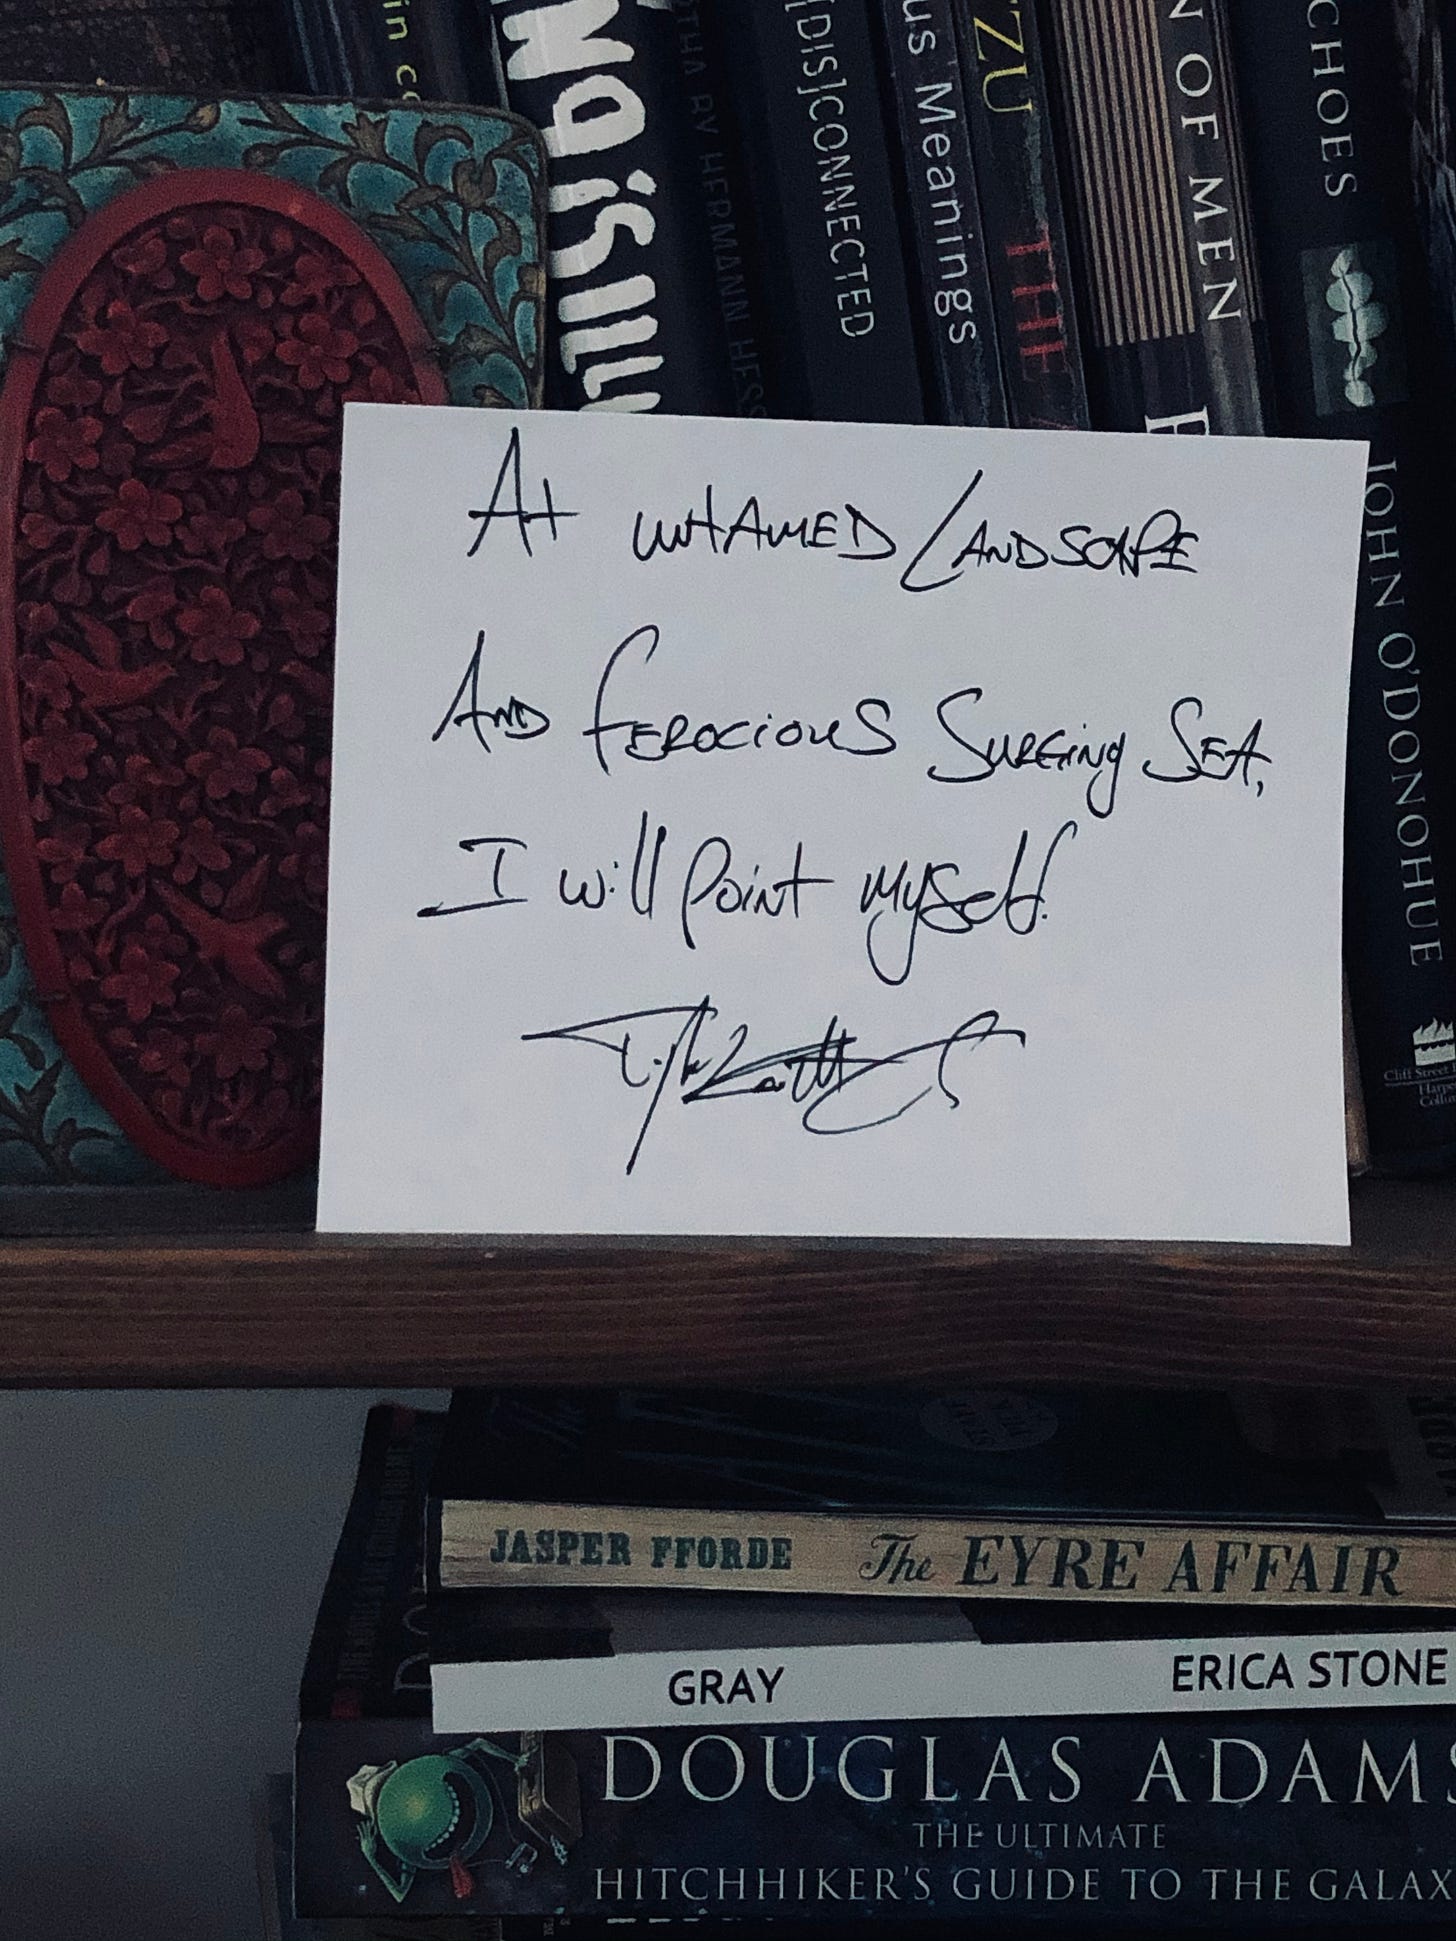 in
[DIS]CONNECTED
us Meanings
TZU
THE
N OF MEN
CHOES
JOHN O'DONOHUE
Cliff Street
At untamed Landscape
And ferocious Surging Sea,
I will point myself.
JASPER FFORDE The EYRE AFFAIR
GRAY ERICA STONE
DOUGLAS ADAMS
THE ULTIMATE
HITCHHIKER'S GUIDE TO THE GALAX